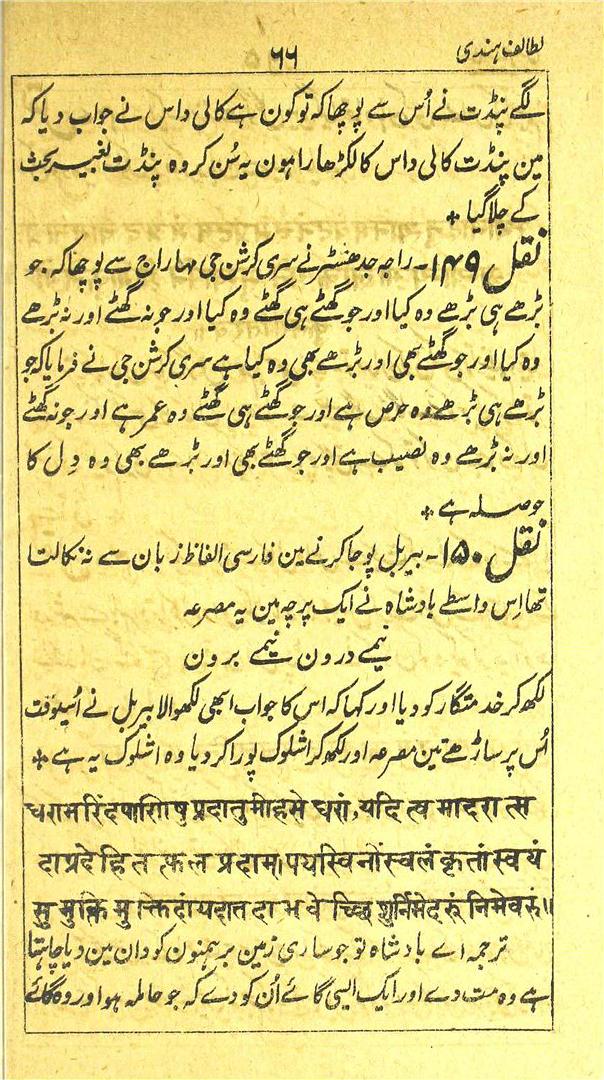 لطائف ہندی
٦٦
لگے پنڈت نے اُس سے پوچھا کہ تو کون ہے کالی داس نے جواب دیا کہ
مین پنڈت کالی داس کا لکڑھارا ہون یہ سُن کر وہ پنڈت بغیر بحث
کے چلا گیا ٭
نقل ۱۴۹ ۔ راجہ جدھشٹر نے سری کرشن جی مہاراج سے پوچھا کہ جو
بڑھے ہی بڑھے وہ کیا اور جو گھٹے ہی گھٹے وہ کیا اور جو نہ گھٹے اور نہ بڑھے
وہ کیا اور جو گھٹے بھی اور بڑھے بھی وہ کیا ہے سری کرشن جی نے فرمایا کہ جو
بڑھے ہی بڑھے وہ حرص ہے اور جو گھٹے ہی گھٹے وہ عمر ہے اور جو نہ گھٹے
اور نہ بڑھے وہ نصیب ہے اور جو گھٹے بھی اور بڑھے بھی وہ دِل کا
حوصلہ ہے ٭
نقل ۱۵۰ ۔ بیربل پوجا کرنے مین فارسی الفاظ زبان سے نہ نکالتا
تھا اِس واسطے بادشاہ نے ایک پرچہ مین یہ مصرعہ
نیمے درون نیمے برون
لکھ کر خدمتگار کو دیا اور کہا کہ اس کا جواب ابھی لکھوا لا بیربل نے اُسیوقت
اُس پر ساڑھے تین مصرعہ اور لکھ کر اشلوک پورا کر دیا وہ اشلوک یہ ہے ٭
धरामरिंदपाणिषु प्रदातुमीहसे धरां, यदि त्व मादरात्स
दाप्रदेहि तत्फल प्रदाम्। पयस्विनींस्वलंकृतां स्वयं
सुमुक्ति मुक्तिदां यदातदा भवेच्छिशुर्निमेदरुं निमेवरुं॥
ترجمہ اے بادشاہ تو جو ساری زمین برہمنون کو دان مین دیا چاہتا
ہے وہ مت دے اور ایک ایسی گائے اُن کو دے کہ جو حاملہ ہو اور وہ گائے